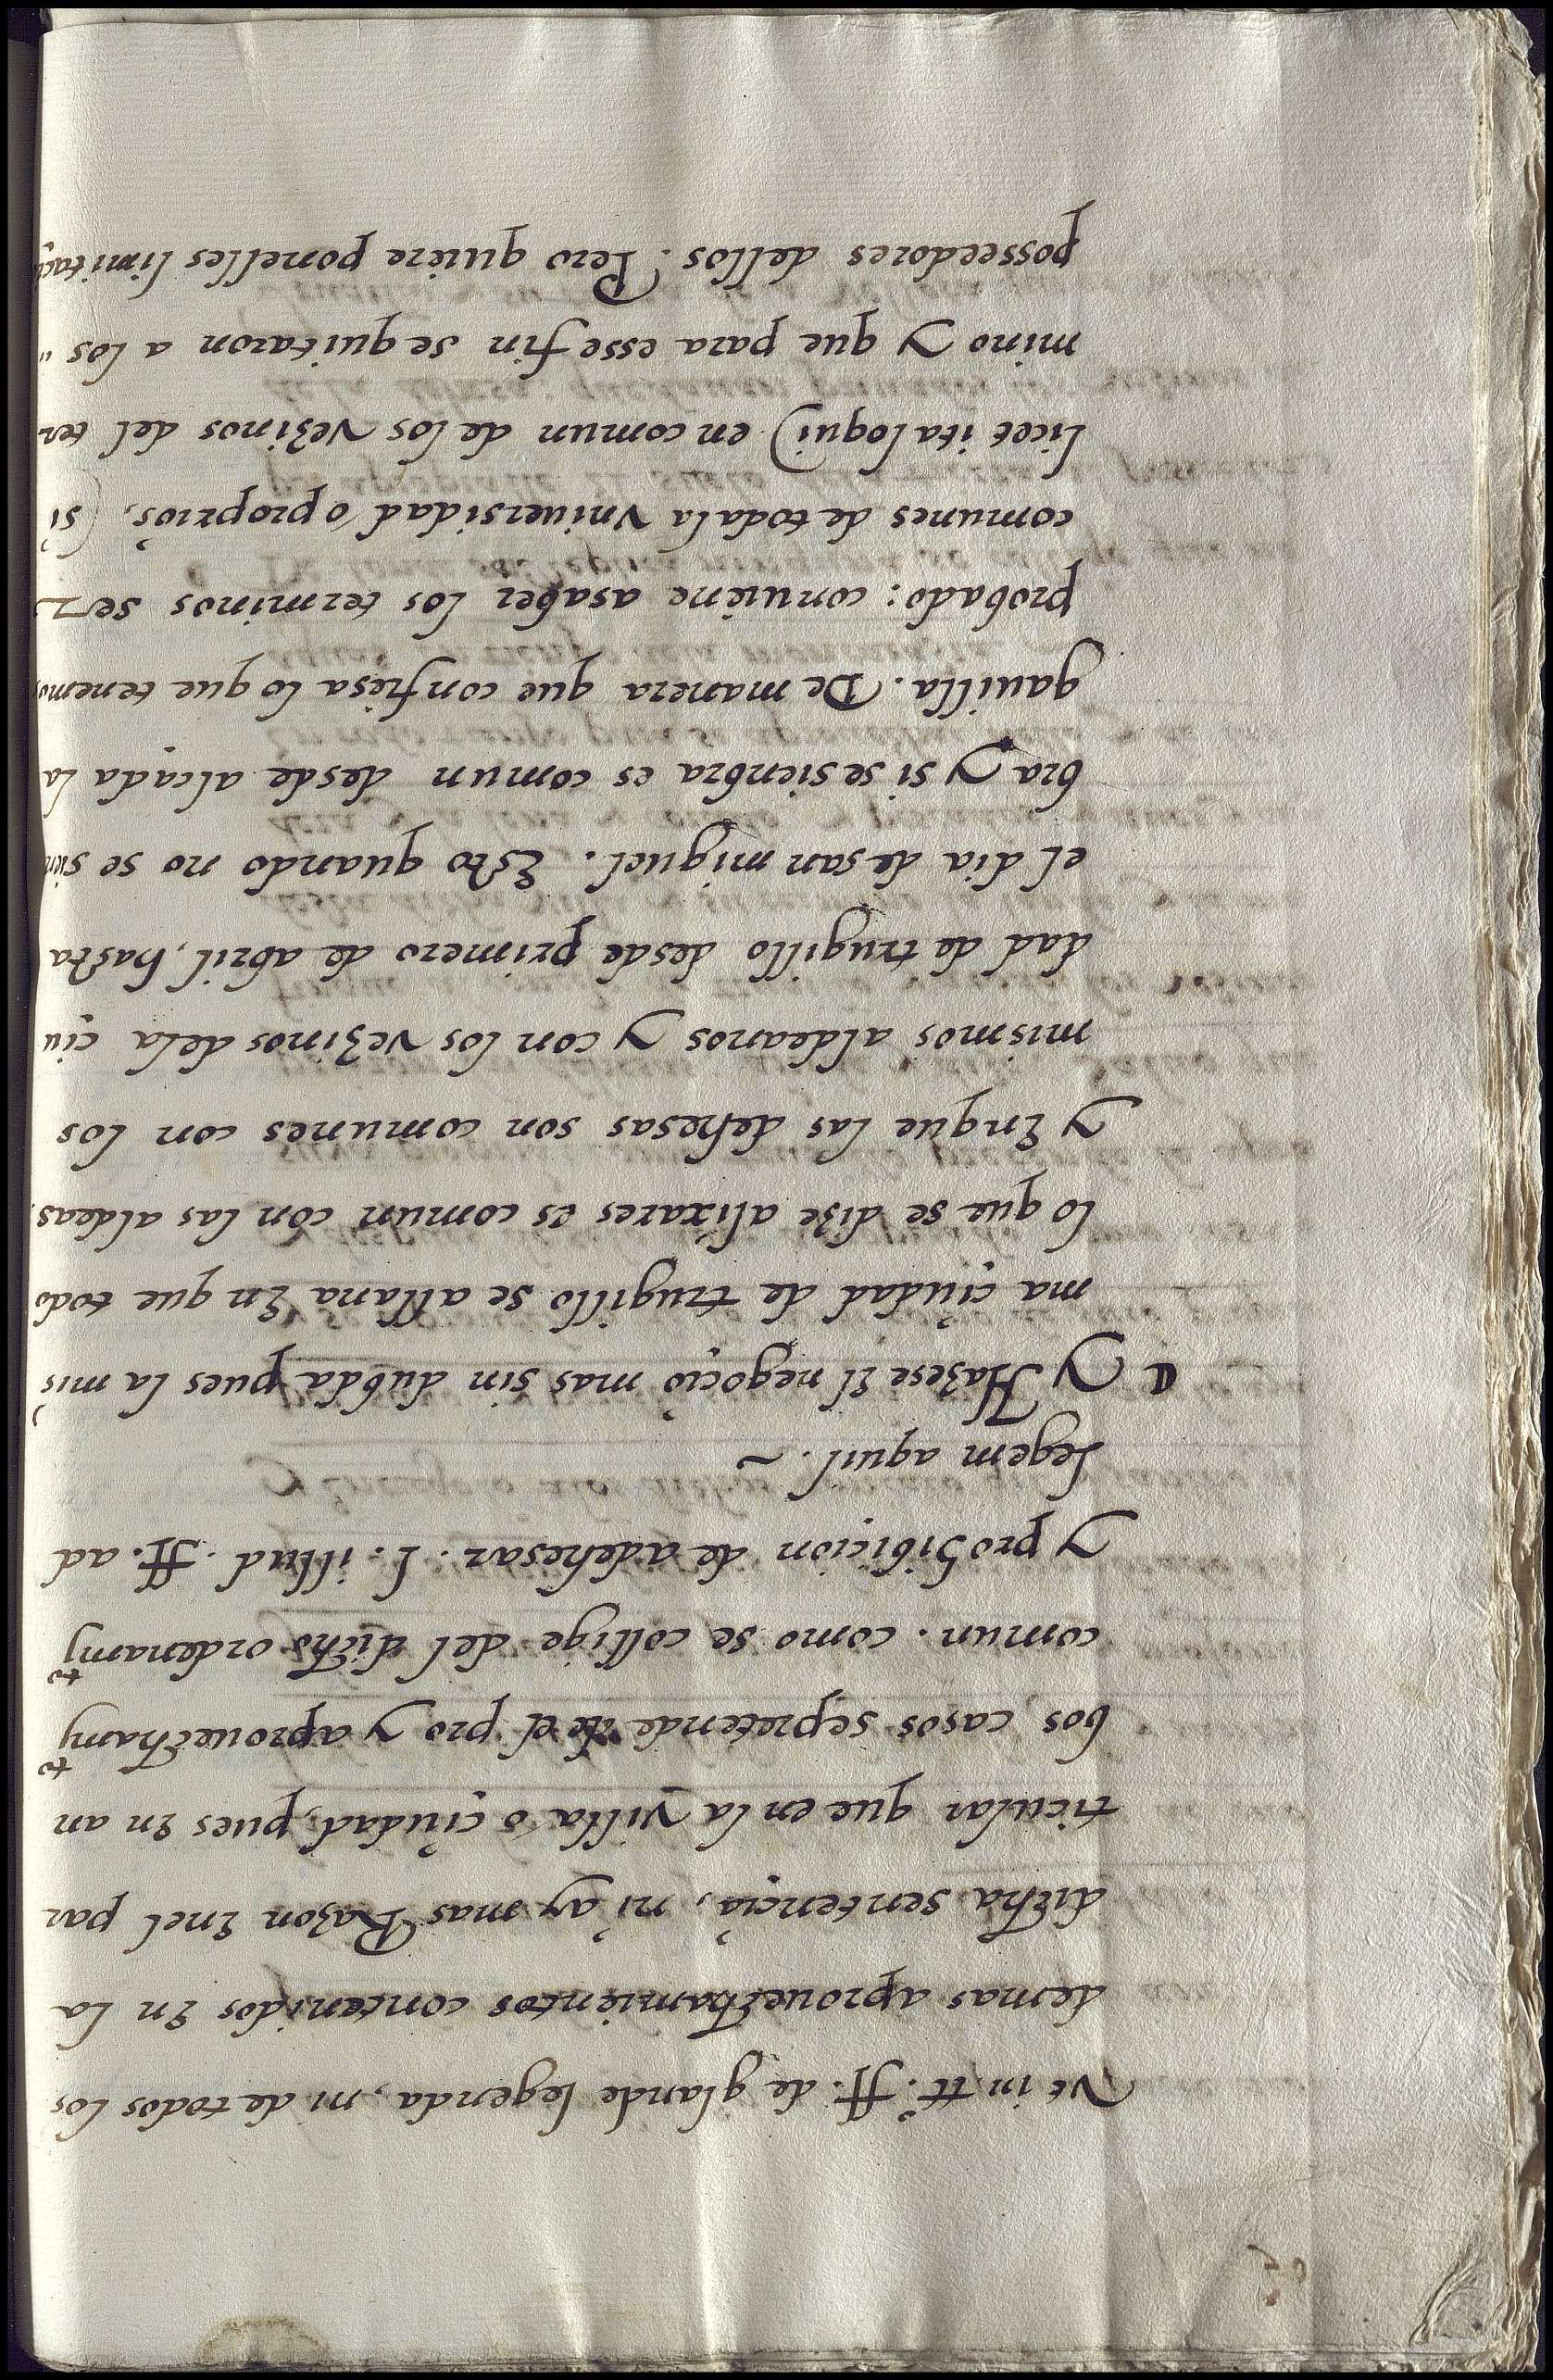 Vt in tt.º ff. de glande legenda, ni de todos los
demas aprouechamientos contenidos En la
dicha sentençia, ni ay mas Razon Enel par
ticular que en la villa o çiudad, pues En an
bos casos se pretende el pro y aprouechamy.to
comun. como se collige del dicho ordenamy.to
y prohibicion de adehesar. l. illud. ff. ad
legem aquil. ~
Y Hazese El negoçio mas sin dubda pues la mis
ma çiudad de trugillo se allana En que todo
lo que se dize alixares es comun con las aldeas.
y Enque las dehesas son comunes con los
mismos aldeanos y con los vezinos dela çiu
dad de trugillo desde primero de abril, hasta
el dia de san miguel. Esto quando no se sien
bra y si se sienbra es comun desde alçada la
gauilla. De manera que confiesa lo que tenemos
probado: conuiene asaber los terminos ser
comunes de toda la vniuersidad o proprios, (si
licet ita loqui) en comun de los vezinos del ter
mino y que para esse fin se quitaron a los
posseedores dellos. Pero quiere ponelles limitaçi